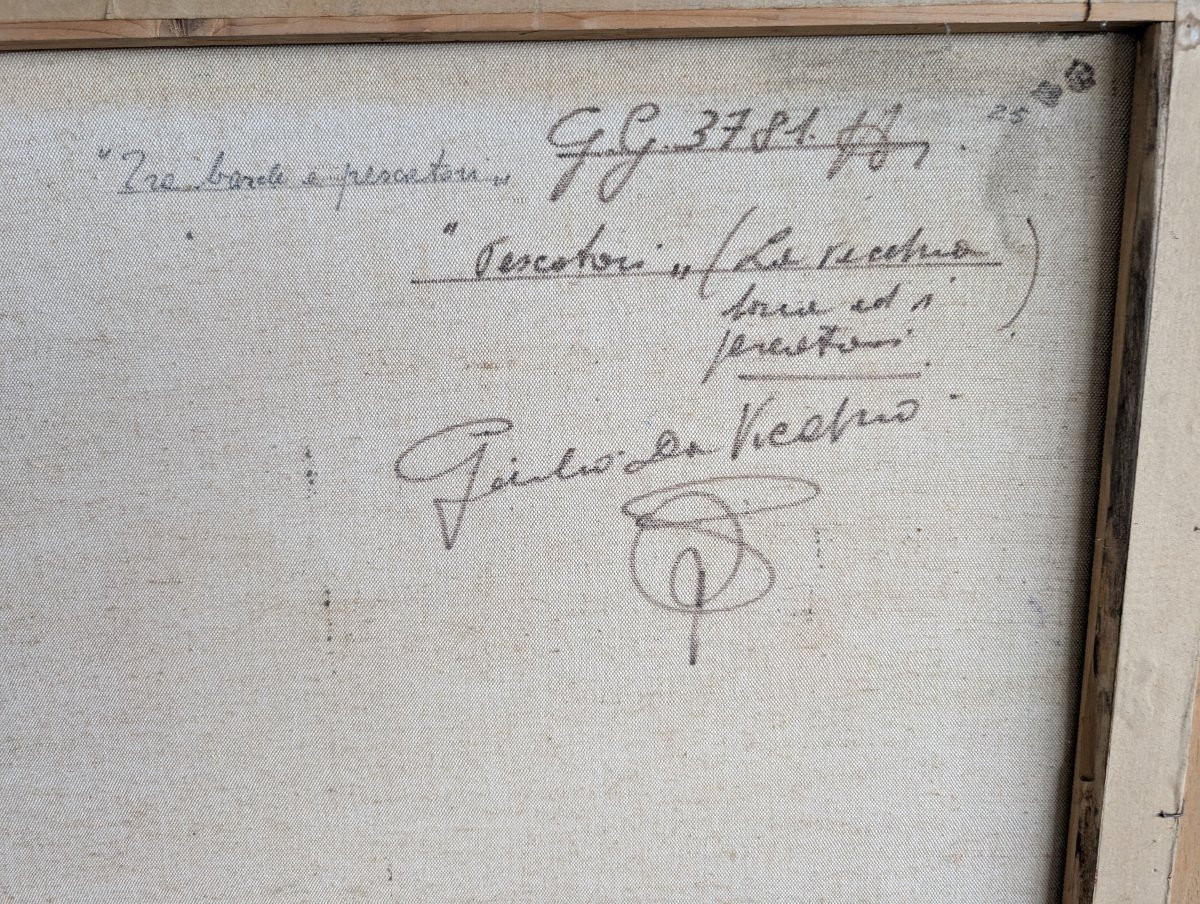 25
G.G. 3781.
"Tre barche e pescatori"
"Pescatori" (La vecchia
torre ed i
pescatori)
Giulio Da Vicchio.